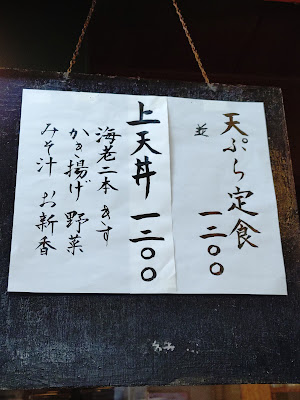 天ぷら定食
並 一二〇〇
上天丼 一二〇〇
海老二本 きす
かき揚げ 野菜
みそ汁 お新香